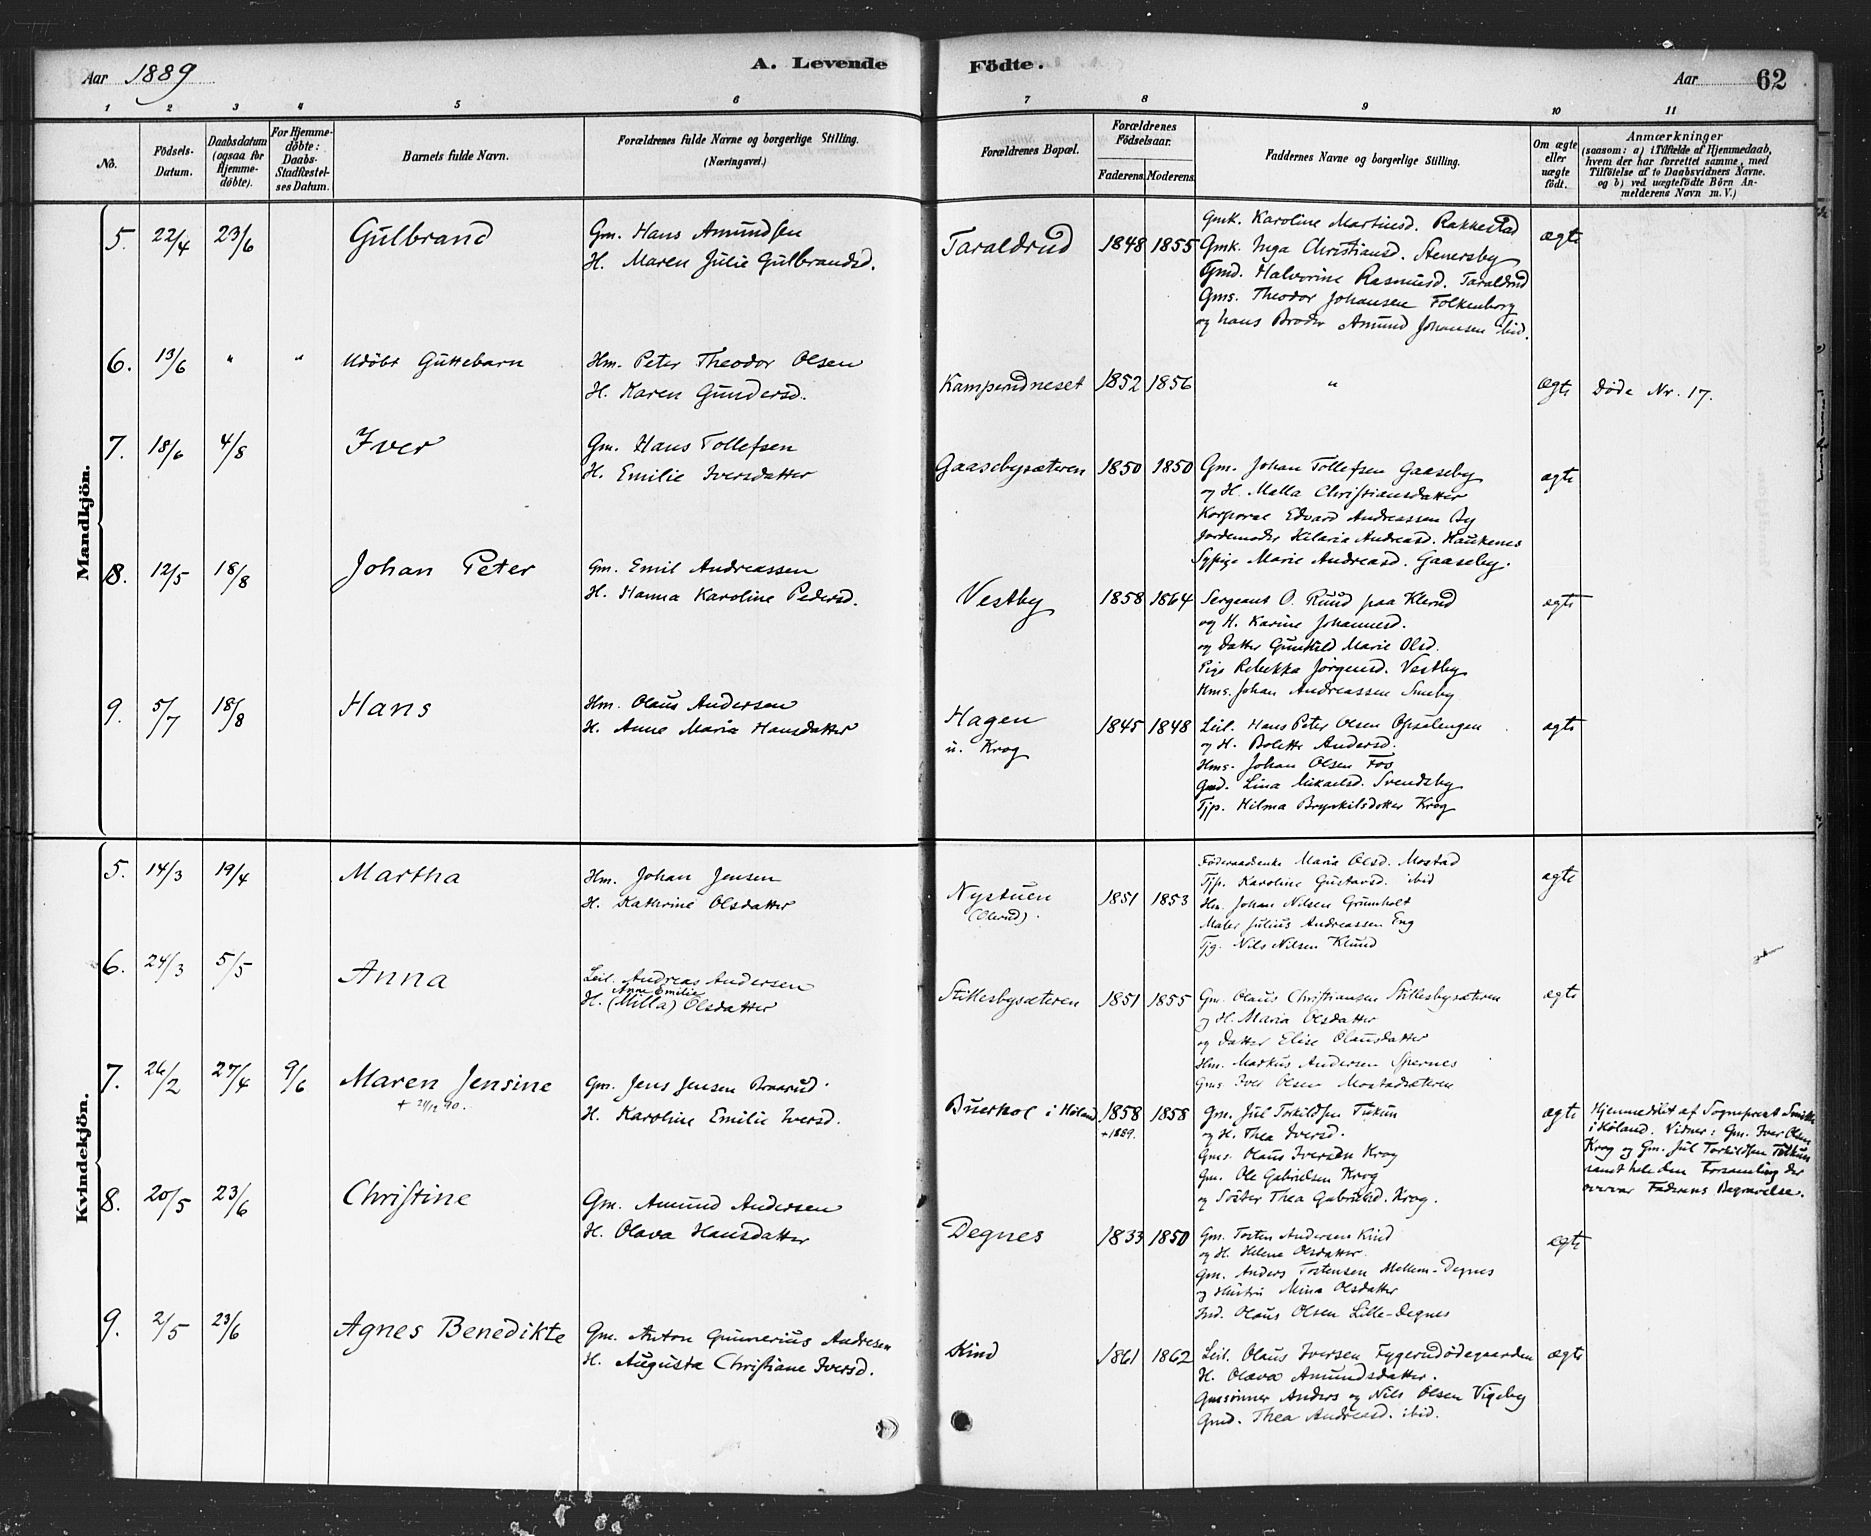 Aar 1889
A. Levende Födte.
Aar 62
1 2 3 4 5 6 7 8 9 10 11
No.
Födsels-Datum.
Daabsdatum (ogsaa for Hjemme-döbte).
For Hjemme-döbte: Daabs-Stadfæstel-ses Datum.
Barnets fulde Navn.
Forældrenes fulde Navne og borgerlige Stilling. (Næringsvei.)
Forældrenes Bopæl.
Forældrenes Födselsaar.
Faderens. Moderens.
Faddernes Navne og borgerlige Stilling.
Om ægte eller uægte födt.
Anmærkninger
(saasom: a) i Tilfælde af Hjemmedaab,
hvem der har forrettet samme, med
Tilföielse af to Daabsvidners Navne.
og b) ved uægtefödte Börn An-
melderens Navn m. V.)
Mandkjön.
5. 22/4 23/6 Gulbrand
Gm. Hans Amundsen
H. Maren Julie Gulbrandsd.
Taraldrud 1848 1855
Gmk. Karoline Martinsd. Rakkestad
Gmk. Inga Christiansd. Stenersby
Gmd. Halvorine Rasmusd. Taraldrud
Gms. Theodor Johansen Folkenborg
og hans Broder Amund Johansen ibid.
ægte
6. 13/6 " " Udöbt Guttebarn
Hm. Peter Theodor Olsen
H. Karen Gundersd.
Kamperudneset 1852 1856 " ægte Døde Nr. 17.
7. 18/6 4/8 Iver
Gm. Hans Tollefsen
H. Emilie Iversdatter
Gaasebysæteren 1850 1850
Gm. Johan Tollefsen Gaaseby
og H. Malla Christiansdatter
Korporal Edvard Andreassen By
Jordemoder Hilaria Andreasd. Haukenes
Sypige Marie Andreasd. Gaaseby.
ægte
8. 12/5 18/8 Johan Peter
Gm. Emil Andreassen
H. Hanna Karoline Pedersd.
Vestby 1858 1864
Sergeant O. Ruud paa Klerud
og H. Karine Johannesd.
og Datter Gunhild Marie Olsd.
Pige Rebekka Jørgensd. Vestby
Hms. Johan Andreassen Smeby
ægte
9. 5/7 18/8 Hans
Hm. Olaus Andersen
H. Anne Maria Hansdatter
Hagen
u. Krog
1845 1848
Leil. Hans Peter Olsen Opsalengen
og H. Bolette Andersd.
Hms. Johan Olsen Fos
Gmd. Lina Mikaelsd. Svendsby
Tjp. Hilma Brynhilsdatter Krog
ægte
Kvindekjön.
5. 14/3 19/4 Martha
Hm. Johan Jensen
H. Kathrine Olsdatter
Nystuen
(Olerud).
1851 1853
Föderaadsenke Maria Olsd. Mostad
Tjp. Karoline Gustavsd. ibid
Hm. Johan Nilsen Grumholt
Maler Julius Andreassen Eng
Tjg. Nils Nilsen Klund
ægte
6. 24/3 5/5 Anna
Leil. Andreas Andersen
Anne Emilie
H. (Milla) Olsdatter
Stillesbysæteren 1851 1855
Gm. Olaus Christiansen Stillesbysæteren
og H. Maria Olsdatter
og Datter Elise Olausdatter
Hm. Markus Andersen Spernes
Gms Iver Olsen Mostadsæteren
ægte
7. 26/2 27/4 9/6 Maren Jensine
+ 21/12 90.
Gm. Jens Jensen Braarud.
H. Karoline Emilie Iversd.
Buerhol i Høland 1858 1858
+1889.
Gm. Jul Torkildsen Tukun
og H. Thea Iversd.
Gms. Olaus Iversen Krog
Gm. Ole Gabrielsen Krog
og Søster Thea Gabrielsd. Krog.
ægte
Hjemmedöbt af Sogneprest
i Høland. Vidner: Gm. Iver Olsen
Krog og Gm. Jul Torkildsen Tukun
samt hele den Forsamling der
overvar Faderens Begravelse.
8. 20/5 23/6 Christine
Gm. Amund Andersen
H. Olava Hansdatter
Degnes 1833 1850
Gm. Tosten Andersen Kind
og H. Helene Olsdatter
Gm. Anders Tostensen Mellem-Degnes
og Hustru Mina Olsdatter
Ind. Olaus Olsen Lille-Degnes
ægte
9. 2/5 23/6 Agnes Benedikte
Gm. Anton Gunnerius Andresen
H. Augusta Christiane Iversd.
Kind 1861 1862
Leil. Olaus Iversen Fygerudödegaarden
H. Olava Amundsdatter.
Gmsönner Anders og Nils Olsen Vigeby
Gmd. Thea Andreasd. ibid.
ægte